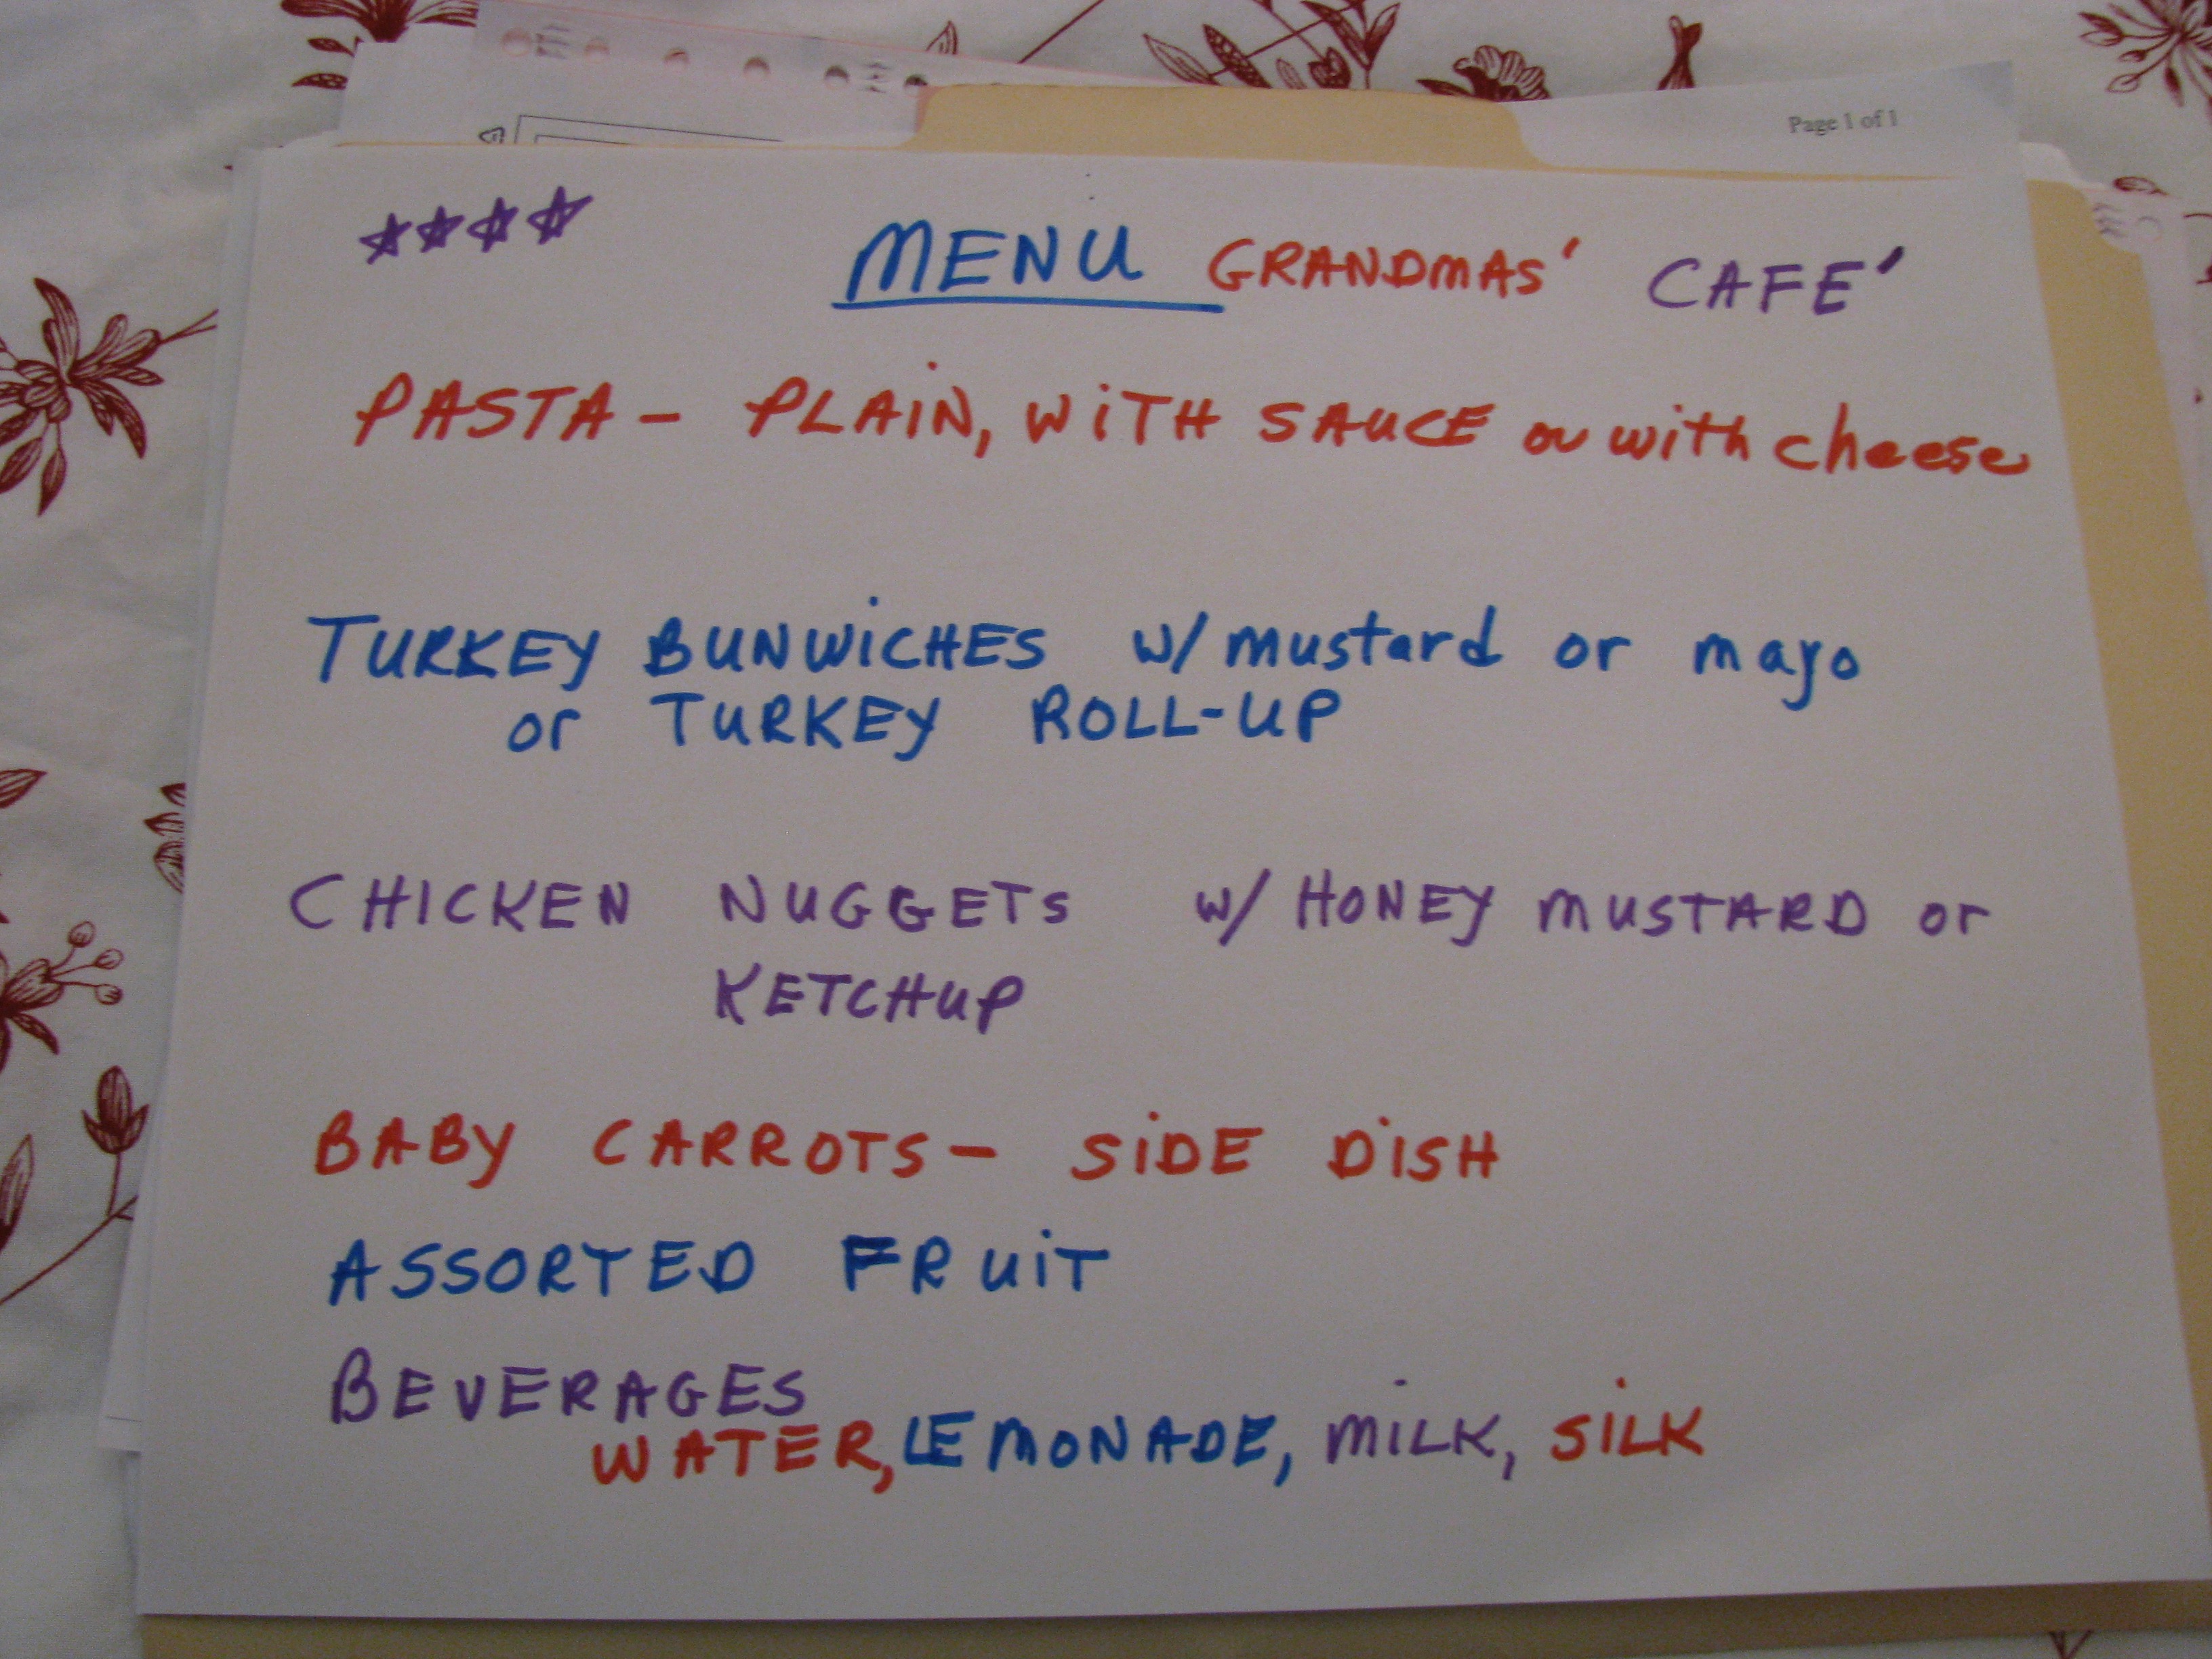 Page 1 of 1
MENU GRANDMAS' CAFE'
PASTA - PLAIN, WITH SAUCE or with cheese
TURKEY BUNWICHES w/ mustard or mayo
or TURKEY ROLL-UP
CHICKEN NUGGETS w/ HONEY MUSTARD or
KETCHUP
BABY CARROTS - SIDE DISH
ASSORTED FRUIT
BEVERAGES
WATER, LEMONADE, MILK, SILK